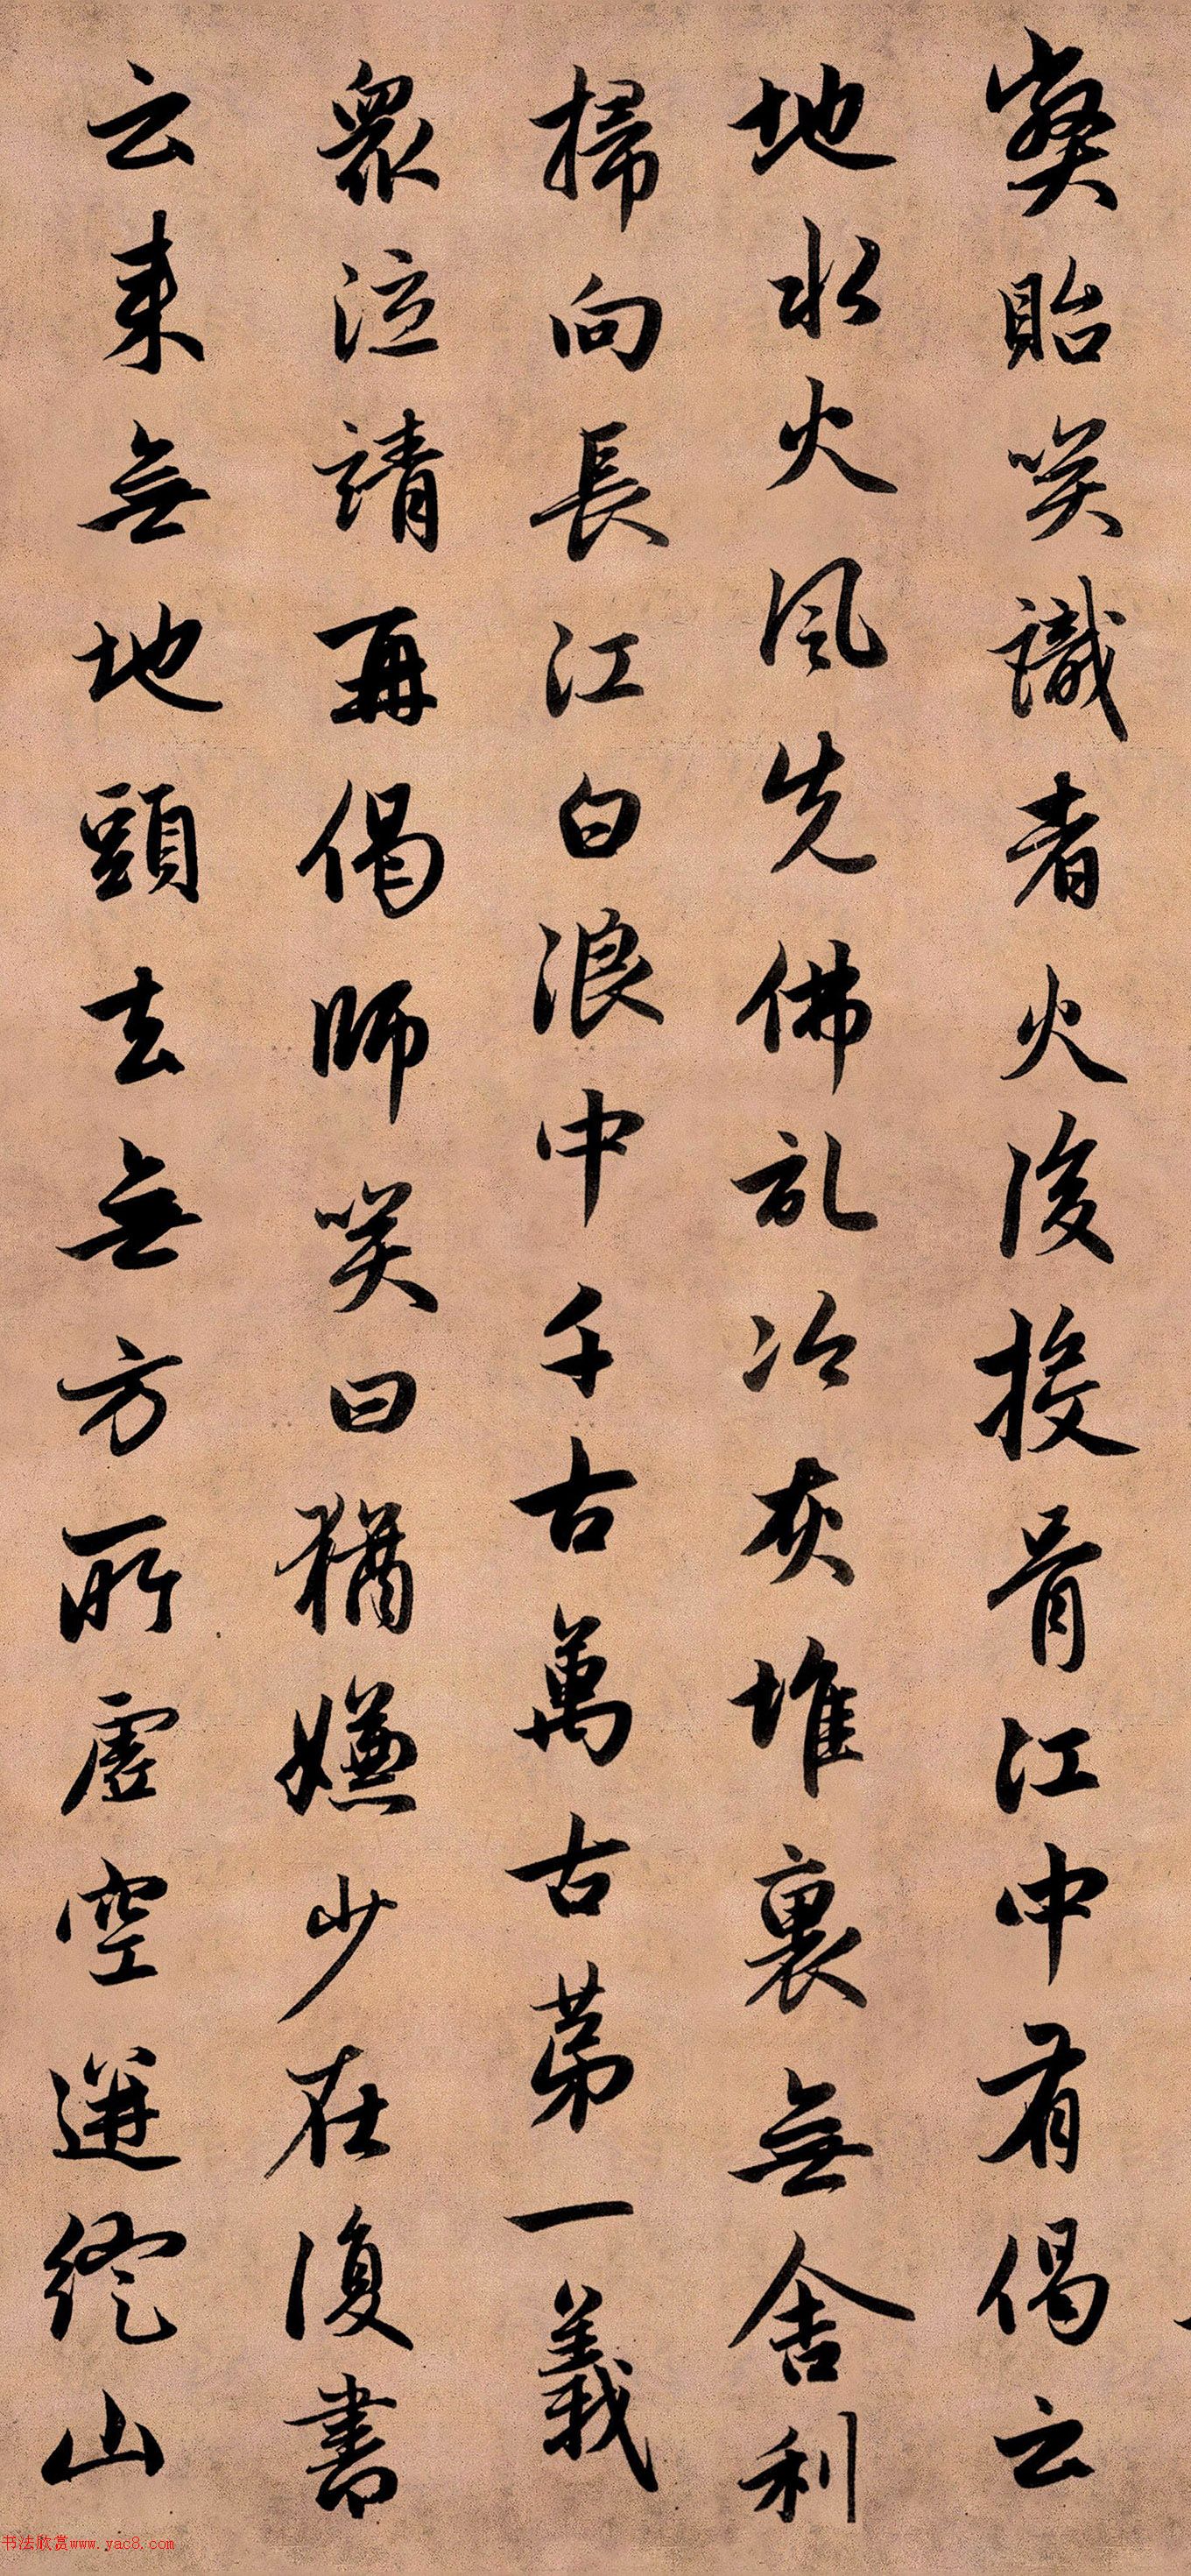 獘貽笑識者火後投骨江中有偈云
地水火風先佛記冷灰堆裏無舍利
掃向長江白浪中千古萬古第一義
眾泣請再偈師笑曰猶嫌少在復書
云來無地頭去無方所虛空迸綻山
书法欣赏www.yac8.com